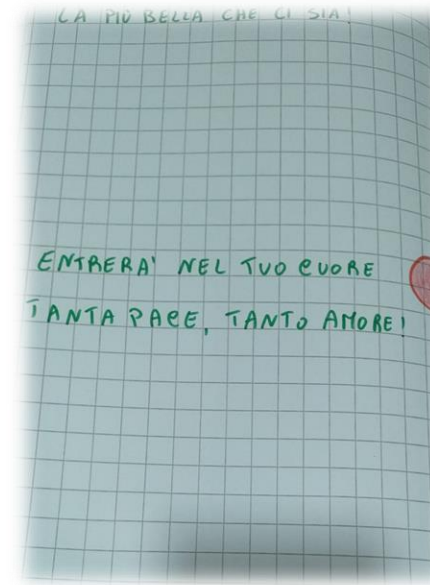 LA PIÙ BELLA CHE CI SIA!
ENTRERA' NEL TUO CUORE
TANTA PACE, TANTO AMORE!